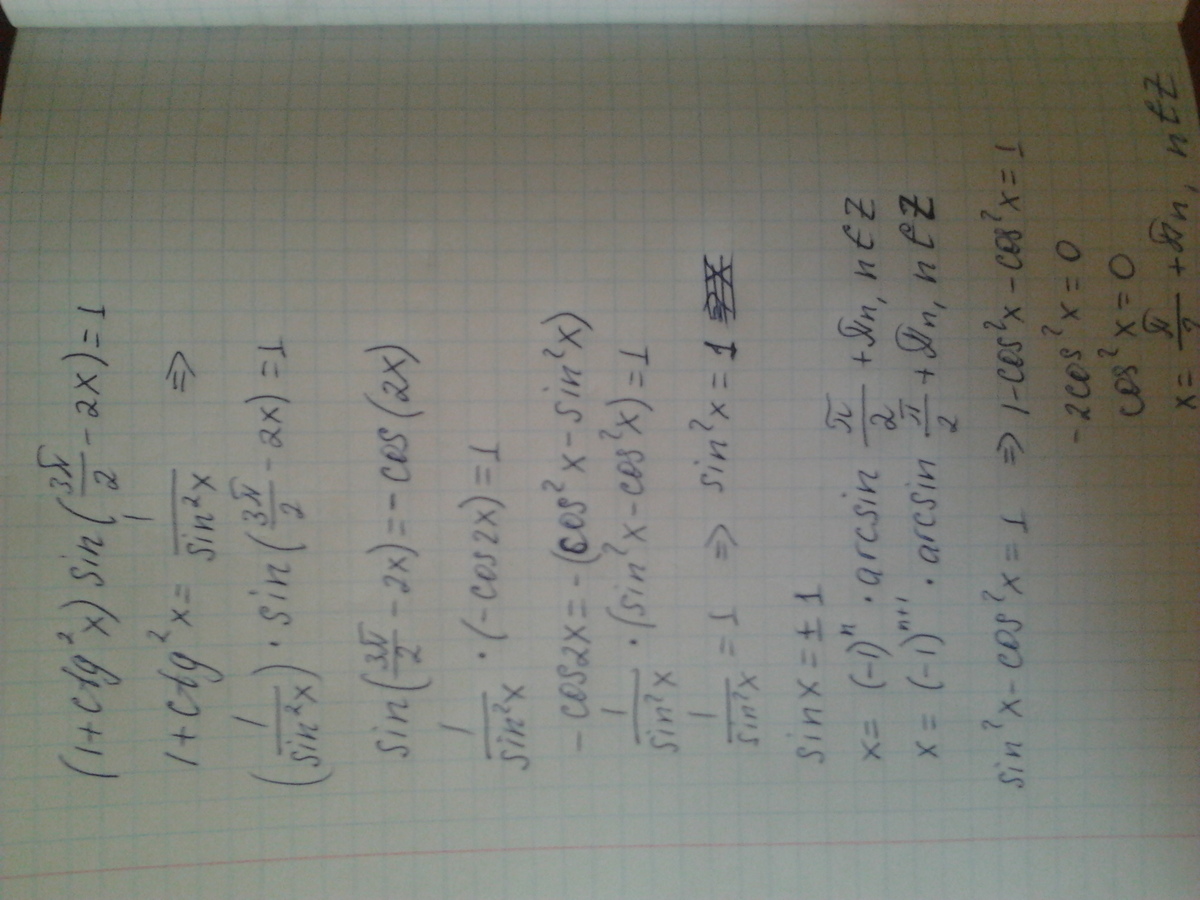 (1+ctg²x) sin(3π/2 - 2x) = 1
1+ctg²x = 1/sin²x ⇒
(1/sin²x) · sin(3π/2 - 2x) = 1
sin(3π/2 - 2x) = -cos(2x)
1/sin²x · (-cos2x) = 1
-cos2x = -(cos²x - sin²x)
1/sin²x · (sin²x - cos²x) = 1
1/sin²x = 1 ⇒ sin²x = 1
sin x = ±1
x = (-1)ⁿ · arcsin π/2 + πn, n∈Z
x = (-1)ⁿ⁺¹ · arcsin π/2 + πn, n∈Z
sin²x - cos²x = 1 ⇒ 1-cos²x - cos²x = 1
-2cos²x = 0
cos²x = 0
x = π/2 + πn, n∈Z